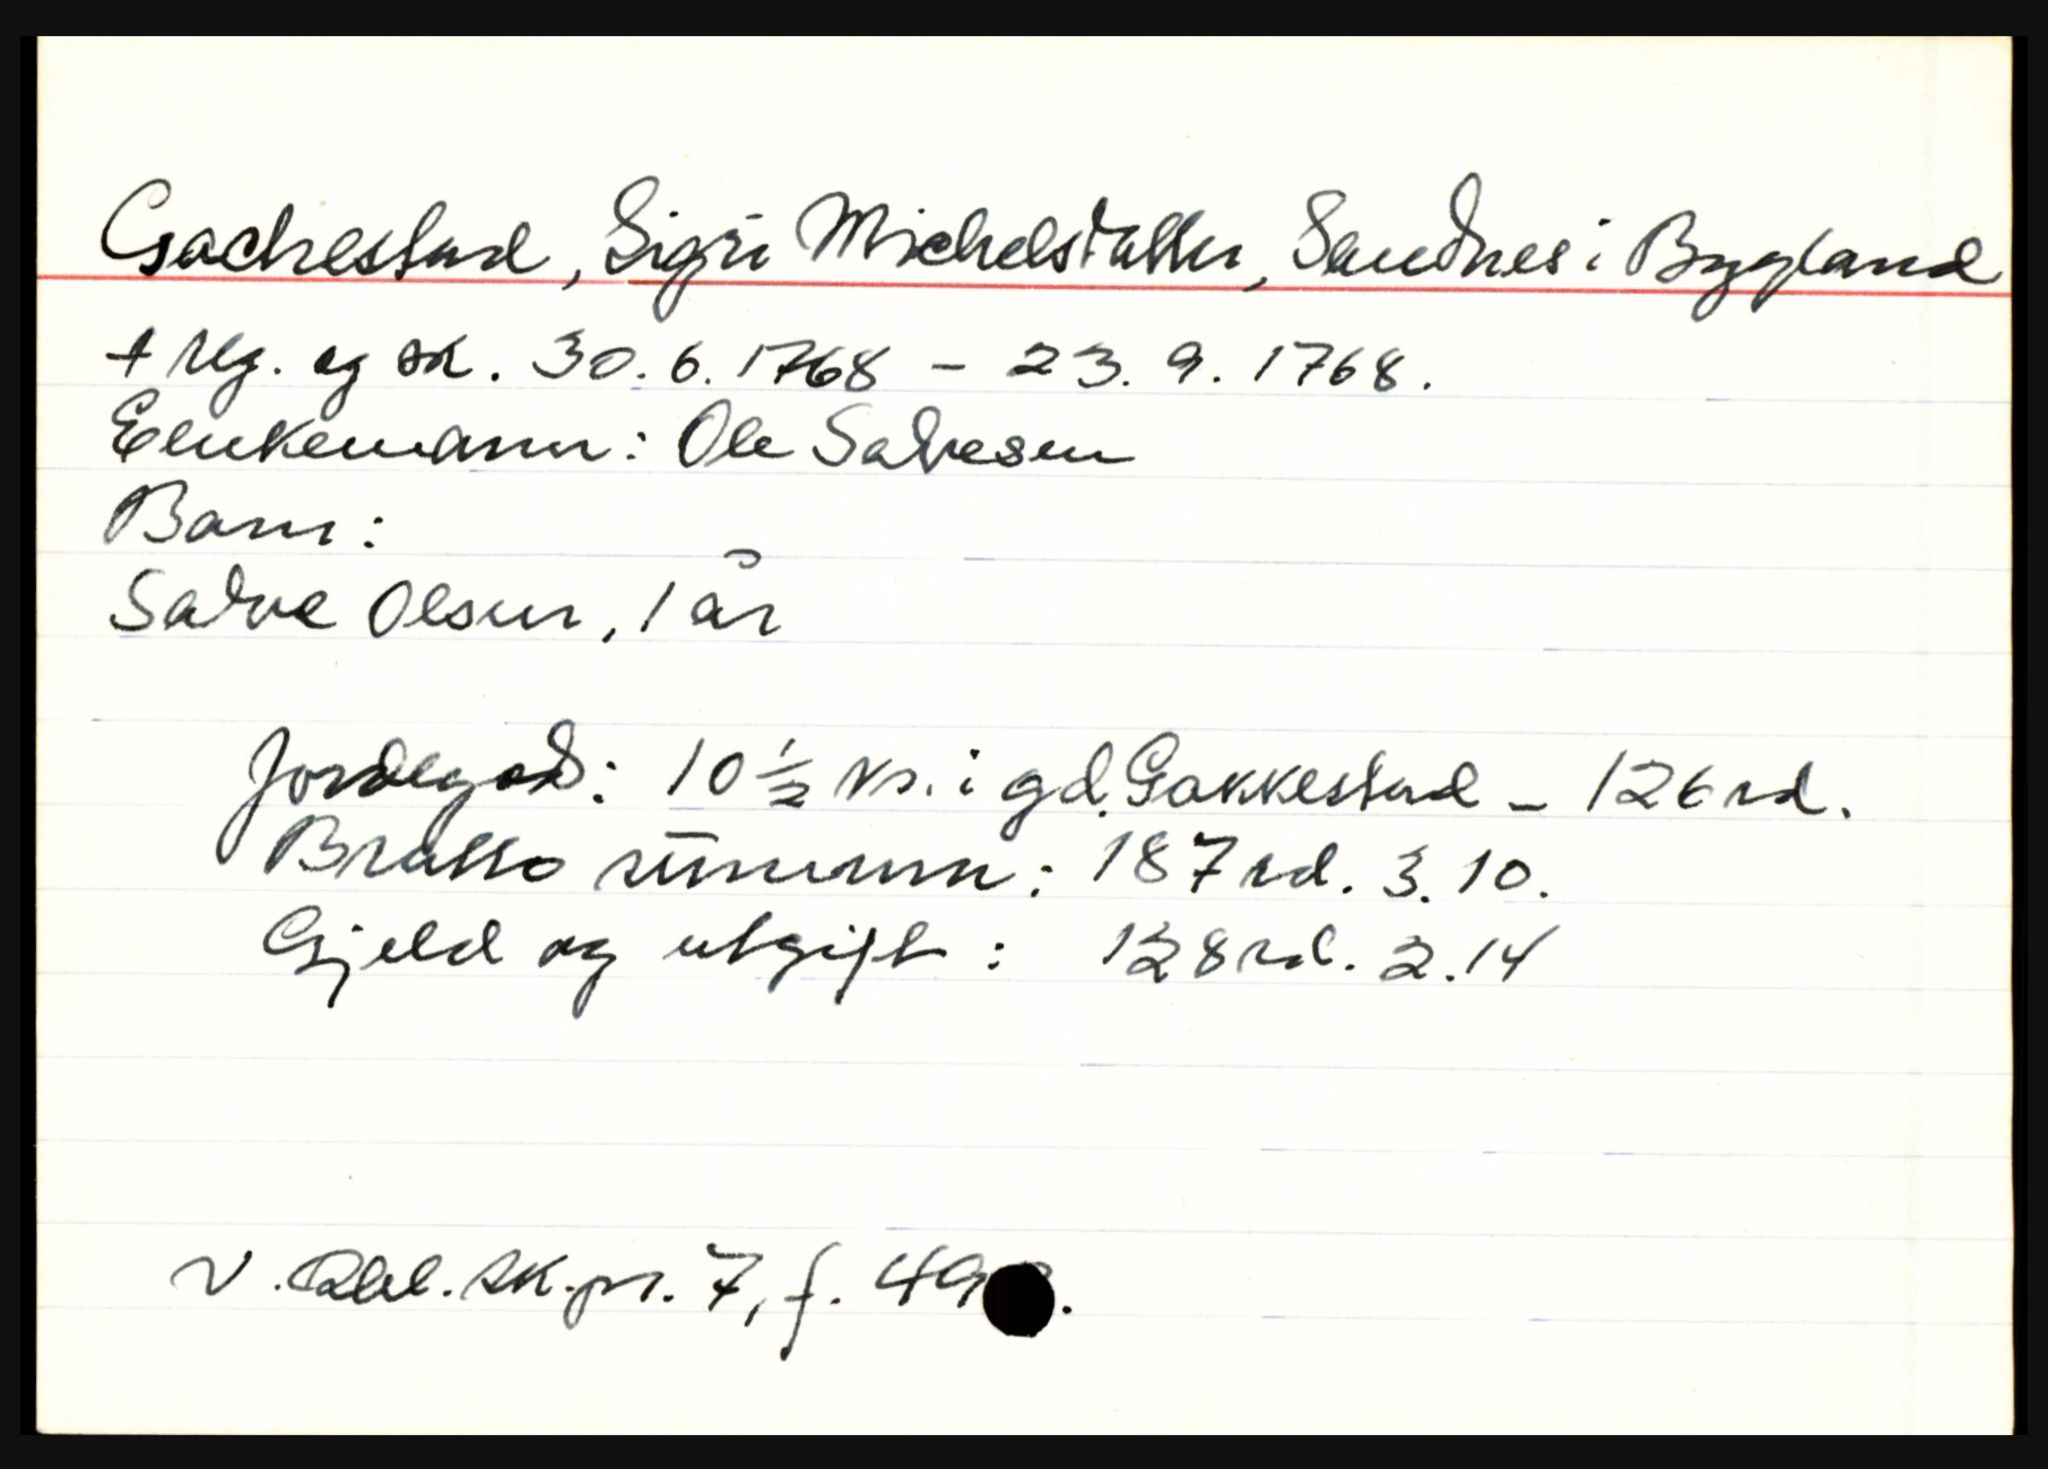 Gachestad, Sigri Michelsdatter, Sandnes i Bygland
+ reg. og sk. 30.6.1768 - 23.9.1768.
Enkemann: Ole Salvesen
Barn:
Salve Olsen, 1 år
Jordegods: 10 1/2 ks. i gd. Gakkestad - 126 rd.
Brutto summen: 187 rd. 3. 10.
Gjeld og utgift: 128 rd. 2.14
V. Rbl. sk.pr. 7, f.